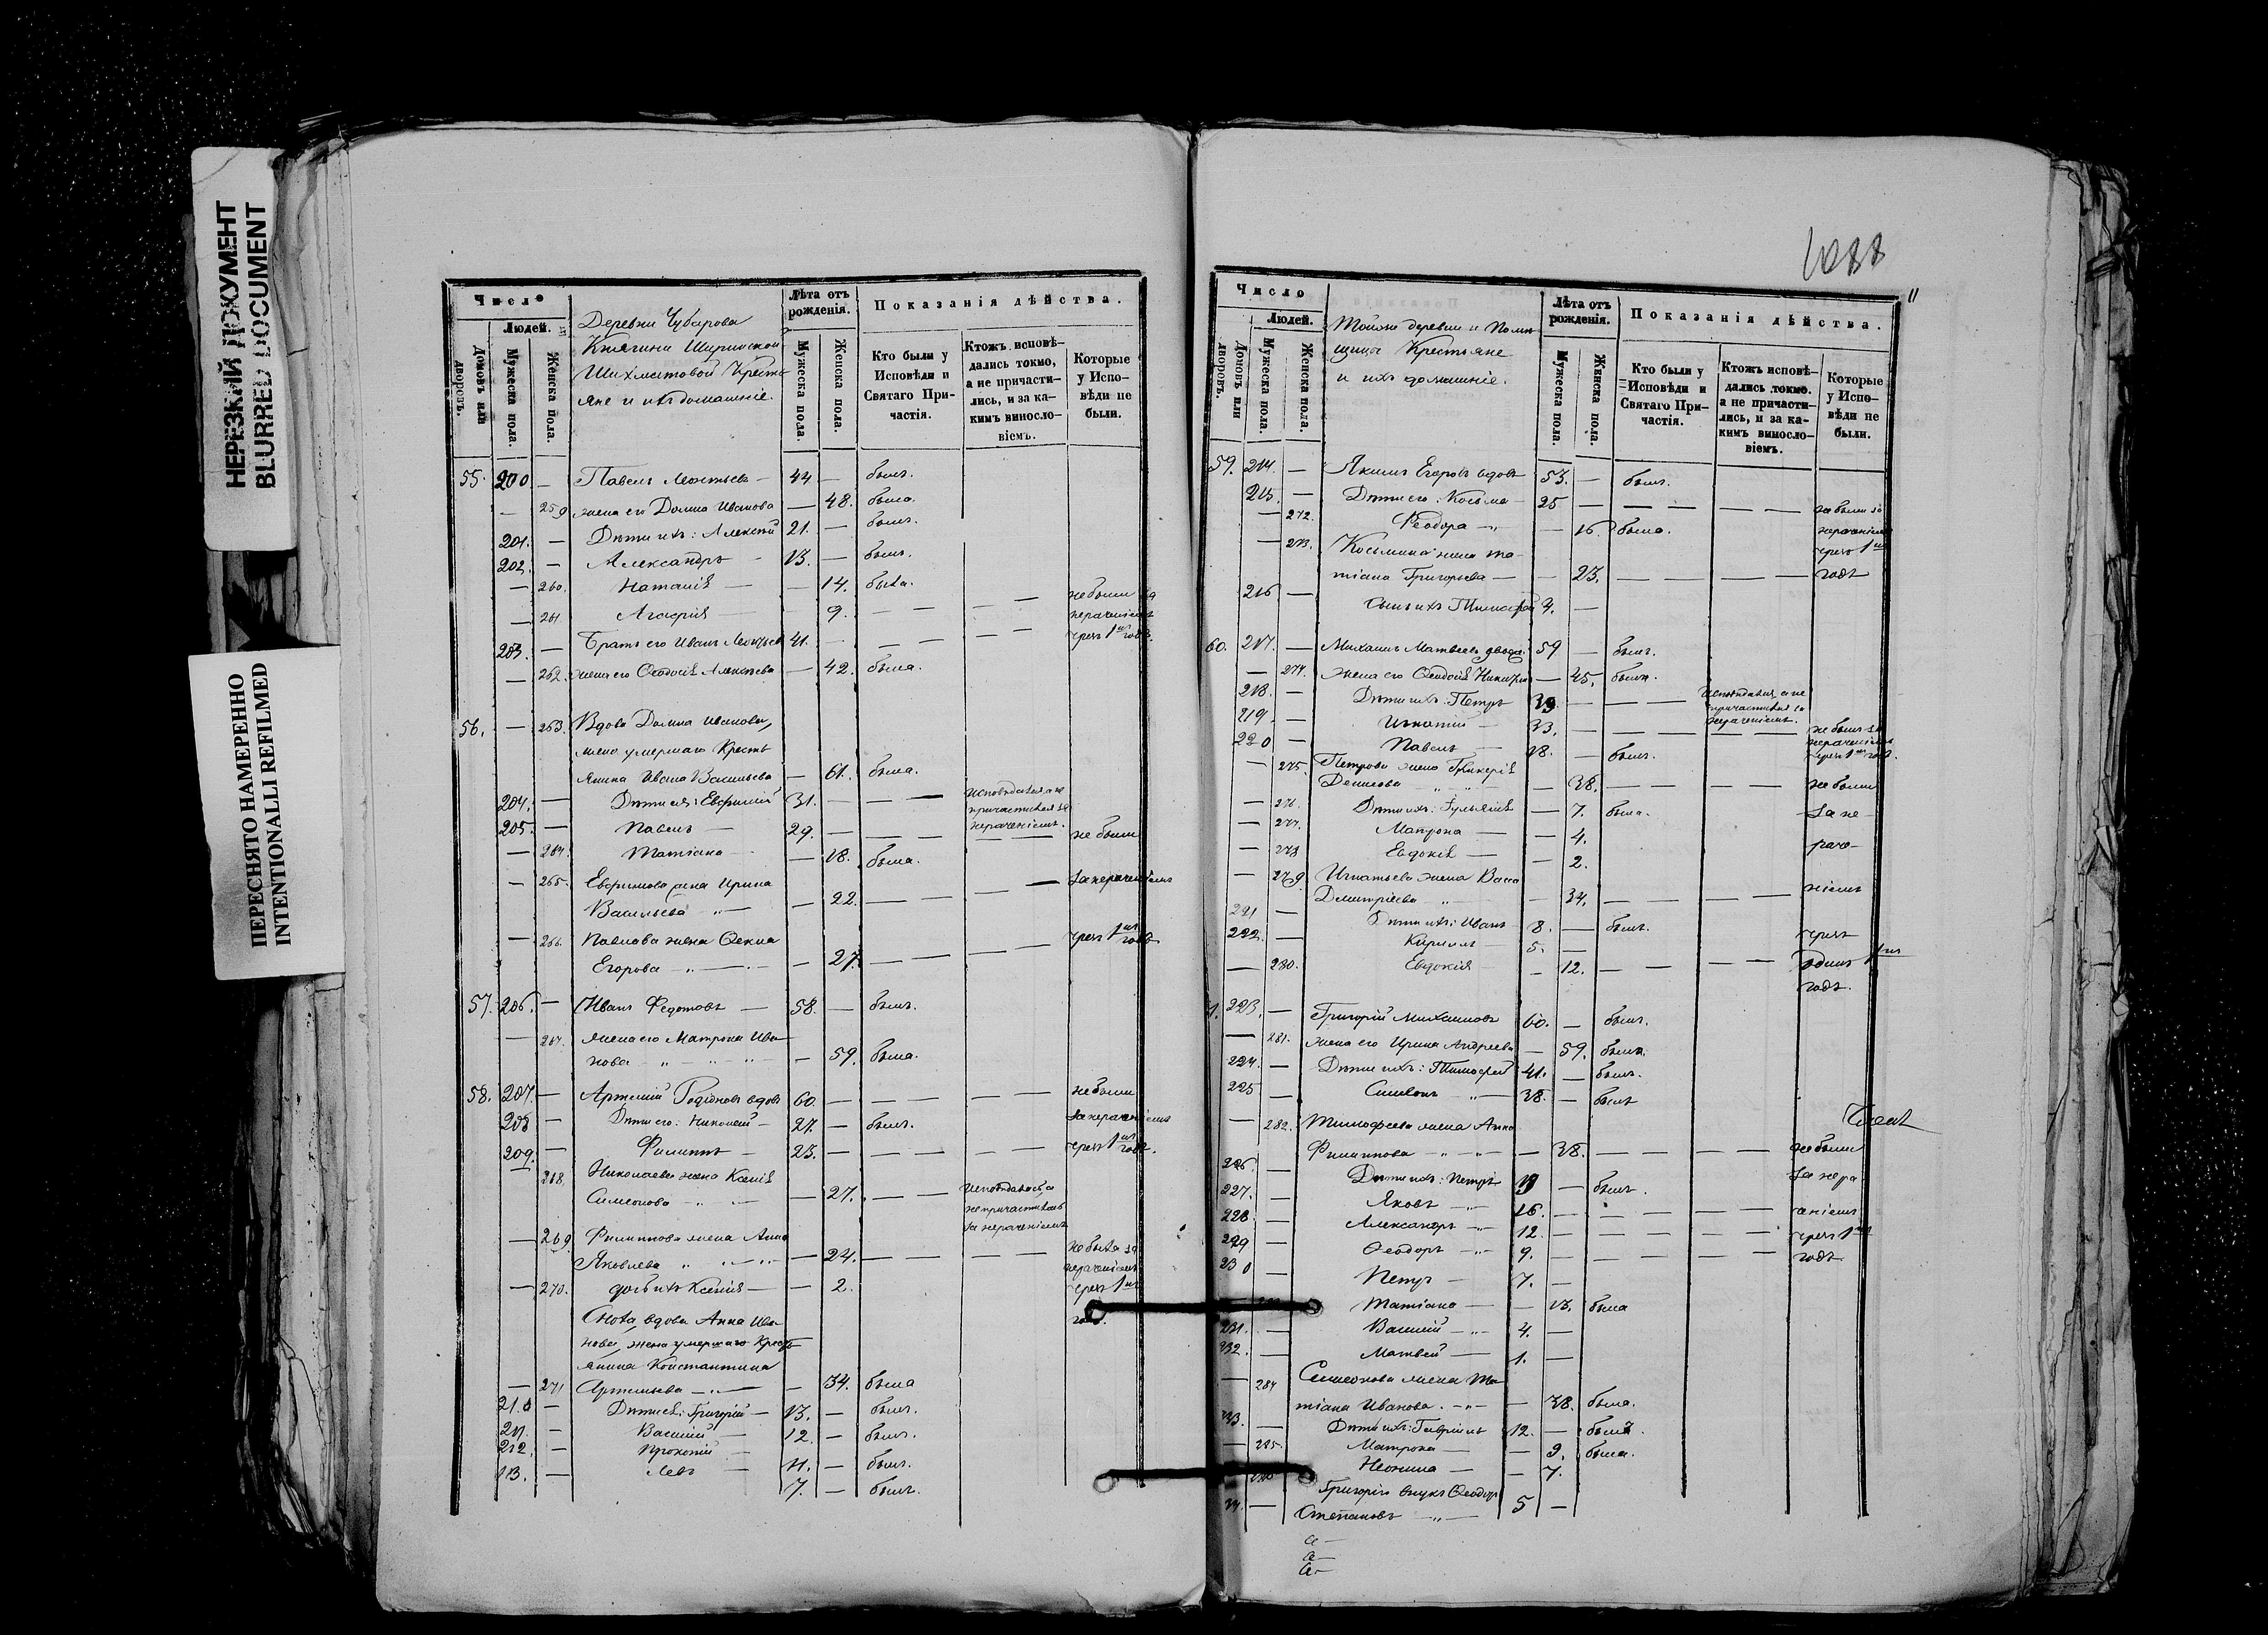 НЕРЕЗКИЙ ДОКУМЕНТ
BLURRED DOCUMENT
ПЕРЕСНЯТО НАМЕРЕННО
INTENTIONALLI REFILMED
Число
Людей.
Домовъ или дворовъ.
Мужеска пола.
Женска пола.
Деревни Чубарова
Княгини Ширинской
Шихматовой Кресть
яне и ихъ домашніе.
Лѣта отъ рожденія.
Мужеска пола.
Женска пола.
Показанія дѣйства.
Кто были у Исповѣди и Святаго Причастія.
Ктожъ исповѣдались токмо, а не причастились, и за какимъ винословіемъ.
Которые у Исповѣди не были.
55. 200 — Павелъ Леонтьевъ — 44 — былъ.
— 259 жена его Домна Иванова — 48. была.
201. — Дѣти ихъ: Алексѣй 21. — былъ.
202. — Александръ — 13. — былъ.
— 260. Наталія — — 14. была.
— 261 Агафія — — 9. — — — не были за
нераченіемъ
203. — Братъ его Иванъ Леонтьев 41. — — — — чрезъ 1нъ годъ.
— 262. жена его Ѳеодосія Алексѣева — 42. была.
56. — 263. Вдова Домна Иванова,
жена умершаго Кресть
янина Ивана Васильева — 61. была.
204. — Дѣти ея: Евфимій 31. — — — исповѣдался, а не
причастился за
нераченіемъ.
205. — Павелъ — 29. — — — — не были
— 264. Татіана — — 18. была.
— 265. Евфимова жена Ирина
Васильева — — 22. — — — за нераченіемъ
— 266. Павлова жена Ѳекла
Егорова — — 27. — — — чрезъ 1нъ годъ
57. 206. — Иванъ Федотовъ — 58. — былъ.
— 267. жена его Матрона Ива
нова — 59. была.
58. 207. — Артемій Родіоновъ вдовъ 60. — — — — не были
208 — Дѣти его: Николай — 27. — былъ. за нераченіемъ
209. — Филиппъ — 23. — — — — чрезъ 1нъ годъ.
268. Николаева жена Ксенія
Симеонова — 27. — — исповѣдалась, а
не причастилась
за нераченіемъ
— 269 Филиппова жена Анна
Яковлева — 24. — — — не была за
нераченіемъ
— 270. дочь ихъ Ксенія — — 2. чрезъ 1нъ
годъ.
Сноха, вдова Анна Ива
нова, жена умершаго Кресть
янина Константина
— 271 Артемьева — — 34. была
210 — Дѣти ея: Григорій — 13. — былъ.
211. — Василій — 12. — былъ.
212. — Прокопій — 11. — былъ.
213. — Левъ — 7. — былъ.
1088
11
Число
Людей.
Домовъ или дворовъ.
Мужеска пола.
Женска пола.
Тойже деревни и Помѣ
щицы Крестьяне
и ихъ домашніе.
Лѣта отъ рожденія.
Мужеска пола.
Женска пола.
Показанія дѣйства.
Кто были у Исповѣди и Святаго Причастія.
Ктожъ исповѣдались токмо. а не причастились, и за какимъ винословіемъ.
Которые у Исповѣди не были.
59. 214. — Якимъ Егоровъ вдовъ 53. — былъ.
215. — Дѣти его: Косьма — 25 — — — — не были за
— 272. Феодора — — 16. была. нераченіемъ
— 273. Косьмина жена Та чрезъ 1нъ
тіана Григорьева — — 23. — — — годъ
216 — Сынъ ихъ Тимофей 4. —
60. 217. — Михаилъ Матвеевъ 59 — былъ.
— 274. жена его Ѳеодосія — 45. была.
218. — Дѣти ихъ: Петръ 39 — — — исповѣдался, а не
причастился за
нераченіемъ.
219. — Игнатій — 33. — — — — не былъ за
нераченіемъ
220 — Павелъ — 18. — былъ. чрезъ 1нъ годъ.
— 275. Петрова жена Гликерія
Денисова — 38. — — — не были
— 276. Дѣти ихъ: — 7. была. за не
— 277. Матрона — — 4.
— 278 Евдокія — — 2. раче
— 279. Игнатьева жена Васса
Димитріева — 34. — — — ніемъ
221 — Дѣти ихъ: Иванъ 8. — былъ.
222. — Кириллъ — 5. — чрезъ
— 280. Евдокія — — 12. — — — одинъ 1нъ
годъ.
1. 223. — Григорій Михаиловъ 60. — былъ.
— 281. жена его Ирина Андреева — 59. была.
224. — Дѣти ихъ: Тимофей 41. — былъ.
225 — Симеонъ — 38. — былъ
— 282. Тимофеева жена Анна
Филиппова — — 38. — — — не были
226. — Дѣти ихъ: Петръ 19 — былъ. за нера
227. — Яковъ — 16. — — — — ченіемъ
228 — Александръ — 12. — — — — чрезъ 1нъ
229 — Ѳеодоръ — 9. — — — — годъ.
230 — Петръ — 7. —
Татіана — — 13. была
231. — Василій — 4. —
232. — Матвей — 1. —
— 284 Симеонова жена Та
тіана Иванова. — 38. была.
233. — Дѣти ихъ: Гавріилъ 12. — былъ.
— 285. Матрона — — 9. была.
Неонила — — 7.
Григорія внукъ Ѳеодоръ
34. — Степановъ — 5 —